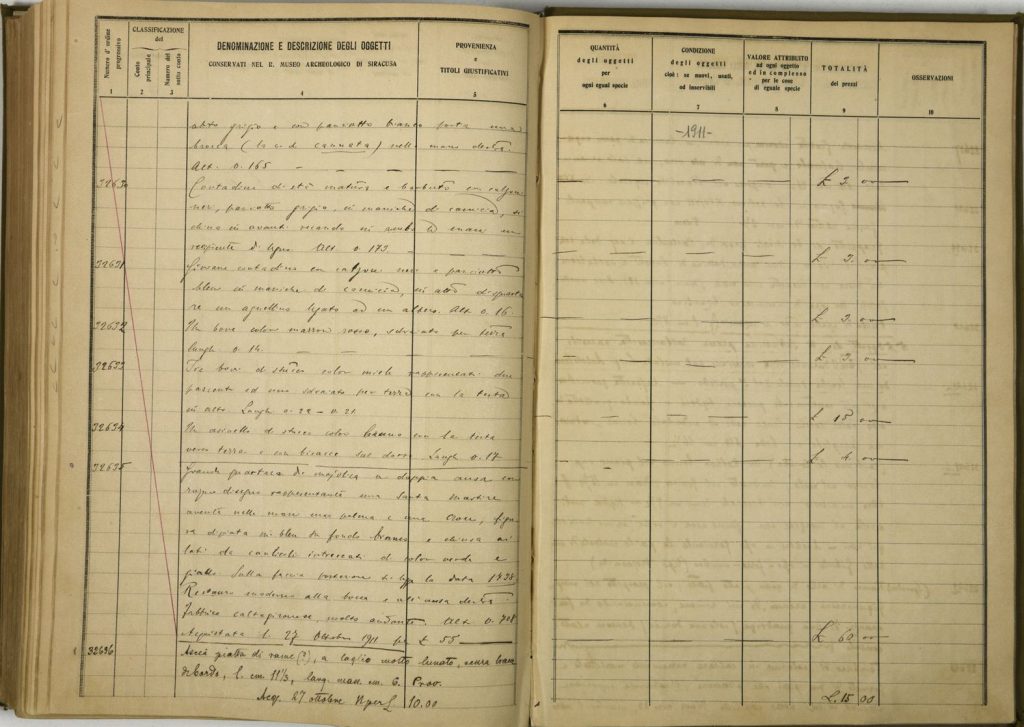 Numero d'ordine progressivo
CLASSIFICAZIONE
del
Conto principale
Numero del sotto conto
DENOMINAZIONE E DESCRIZIONE DEGLI OGGETTI
CONSERVATI NEL R. MUSEO ARCHEOLOGICO DI SIRACUSA
PROVENIENZA
e
TITOLI GIUSTIFICATIVI
1 2 3 4 5
abito grigio e con panciotto bianco porta una
brocca (la c.d. cannata) nella mano destra.
Alt. 0.165 —
32630 Contadino di età matura e barbuto con calzoni
neri, panciotto grigio, in maniche di camicia, si
china in avanti recando in ambo le mani un
recipiente di legno Alt. 0.173 —
32631 Giovane contadino con calzoni neri e panciotto
bleu in maniche di camicia, in atto di
re un agnellino legato ad un albero. Alt. 0.16.
32632 Un bove color marrone rosso, sdraiato per terra
lungh. 0.14.
32633 Tre bovi di stucco color miele rappresentati due
pascenti ed uno sdraiato per terra con la testa
in alto. Lungh. 0.22 — 0.21
32634 Un asinello di stucco color bruno con la testa
verso terra e con bisacce sul dorso Lungh. 0.17
32635 Grande quartara di majolica a doppia ansa con
disegno rappresentante una Santa martire
avente nelle mani una palma e una croce, figu
ra dipinta in bleu su fondo bianco e chiusa ai
lati da intrecciati di color verde e
giallo. Sulla faccia posteriore si legge la data 1738
Restauro moderno alla bocca e all'ansa destra.
Fabbrica caltagironese, molto andante Alt. 0.708
Acquistata li 27 Ottobre 1911 per £ 55 —
32636 Ascia piatta di rame (?), a taglio molto lunato, senza
di bordo, l. cm. 11 1/3, larg. mass. cm. 6. Prov.
Acq. 27 ottobre per £ 10.00
QUANTITÀ
degli oggetti
per
ogni egual specie
CONDIZIONE
degli oggetti
cioè: se nuovi, usati,
od inservibili
VALORE ATTRIBUITO
ad ogni oggetto
ed in complesso
per le cose
di eguale specie
TOTALITÀ
dei prezzi
OSSERVAZIONI
6 7 8 9 10
-1911-
£ 3. 00
£ 3. 00
£ 3. 00
£ 3. 00
£ 15 00
£ 4. 00
£ 60 00
£. 15 00